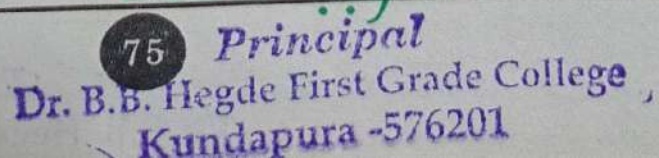 75 Principal
Dr. B.B. Hegde First Grade College,
Kundapura -576201